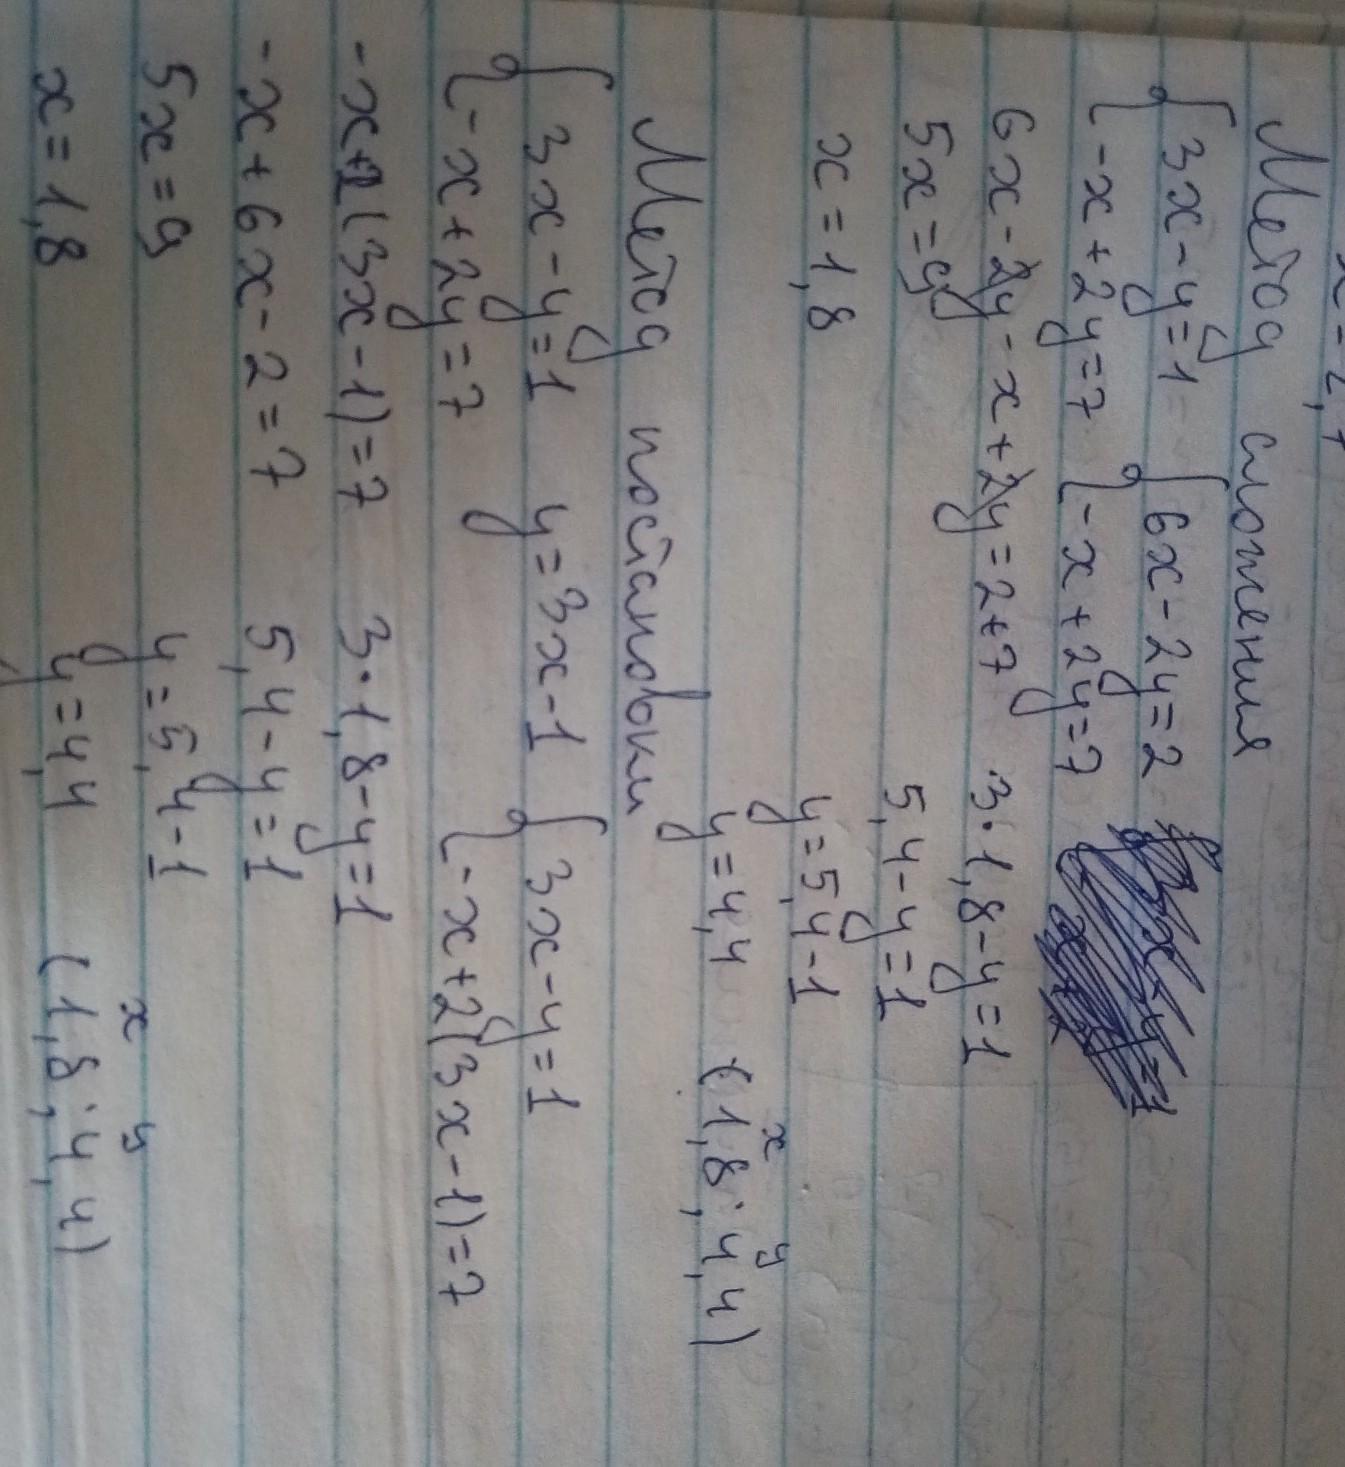 Метод сложения
{ 3x-y=1 { 6x-2y=2
{ -x+2y=7 { -x+2y=7
6x-2y-x+2y=2+7 3·1,8-y=1
5x=9 5,4-y=1
x=1,8 y=5,4-1
y=4,4 (1,8; 4,4)
x y
Метод постановки
{ 3x-y=1 y=3x-1 { 3x-y=1
{ -x+2y=7 { -x+2(3x-1)=7
-x+2(3x-1)=7 3·1,8-y=1
-x+6x-2=7 5,4-y=1
5x=9 y=5,4-1
x y
x=1,8 y=4,4 (1,8; 4,4)